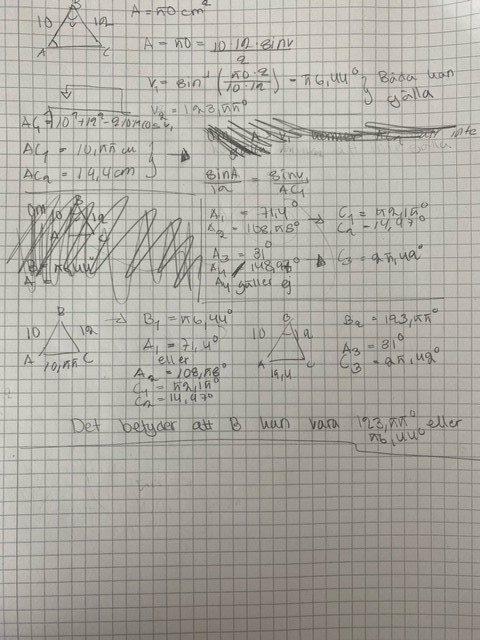 B
10 v 12
A C
A = 50 cm²
A = 50 = 10·12·sinv / 2
V₁ = sin⁻¹ (50·2 / 10·12) = 56,44° } Båda kan gälla
V₂ = 123,55°
AC₁ = 10,55 cm
AC₂ = 19,4 cm
sinA / 12 = sinv₁ / AC₁
A₁ = 71,4° → C₁ = 52,15°
A₂ = 108,58° C₂ = 14,97°
A₃ = 31° C₃ = 25,42°
A₄ = 148,98°
A₄ gäller ej
B
10 12
A 10,55 C
→ B₁ = 56,44°
A₁ = 71,4°
eller
A₂ = 108,58°
C₁ = 52,15°
C₂ = 14,97°
B
10 12
A C
19,4
B₂ = 123,55°
A₃ = 31°
C₃ = 25,42°
Det betyder att B kan vara 123,55° eller
56,44°